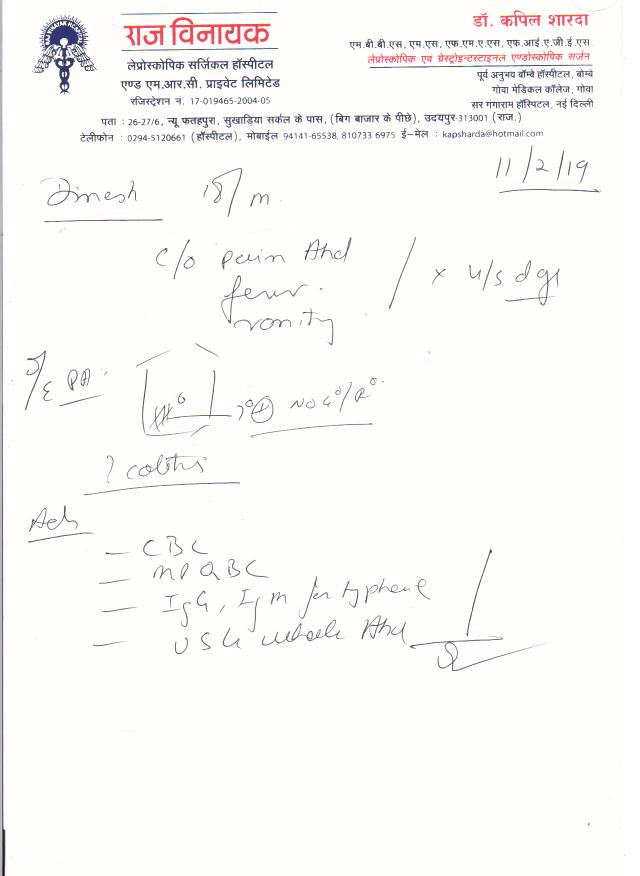 राज विनायक
लेप्रोस्कोपिक सर्जिकल हॉस्पीटल
एण्ड एम.आर.सी. प्राइवेट लिमिटेड
रजिस्ट्रेशन नं. 17-019465-2004-05
डॉ. कपिल शारदा
एम.बी.बी.एस, एम.एस, एफ.एम.ए.एस, एफ.आई.ए.जी.ई.एस.
लेप्रोस्कोपिक एवं ग्रेस्ट्रोइन्टस्टाइनल एण्डोस्कोपिक सर्जन
पूर्व अनुभव बॉम्बे हॉस्पीटल, बोम्बे
गोवा मेडिकल कॉलेज, गोवा
सर गंगाराम हॉस्पिटल, नई दिल्ली
पता : 26-27/6, न्यू फतहपुरा, सुखाड़िया सर्कल के पास, (बिग बाजार के पीछे), उदयपुर-313001 (राज.)
टेलीफोन : 0294-5120661 (हॉस्पीटल), मोबाईल 94141-65538, 810733 6975 ई-मेल : kapsharda@hotmail.com
11/2/19
Dinesh 18/m
c/o pain Abd
fever
vomity
x 4/5 dys
O/E PA:
No G°/R°
? colitis
Adv
— CBC
— MP QBC
— IgG, IgM for typhoid
— USG whole Abd